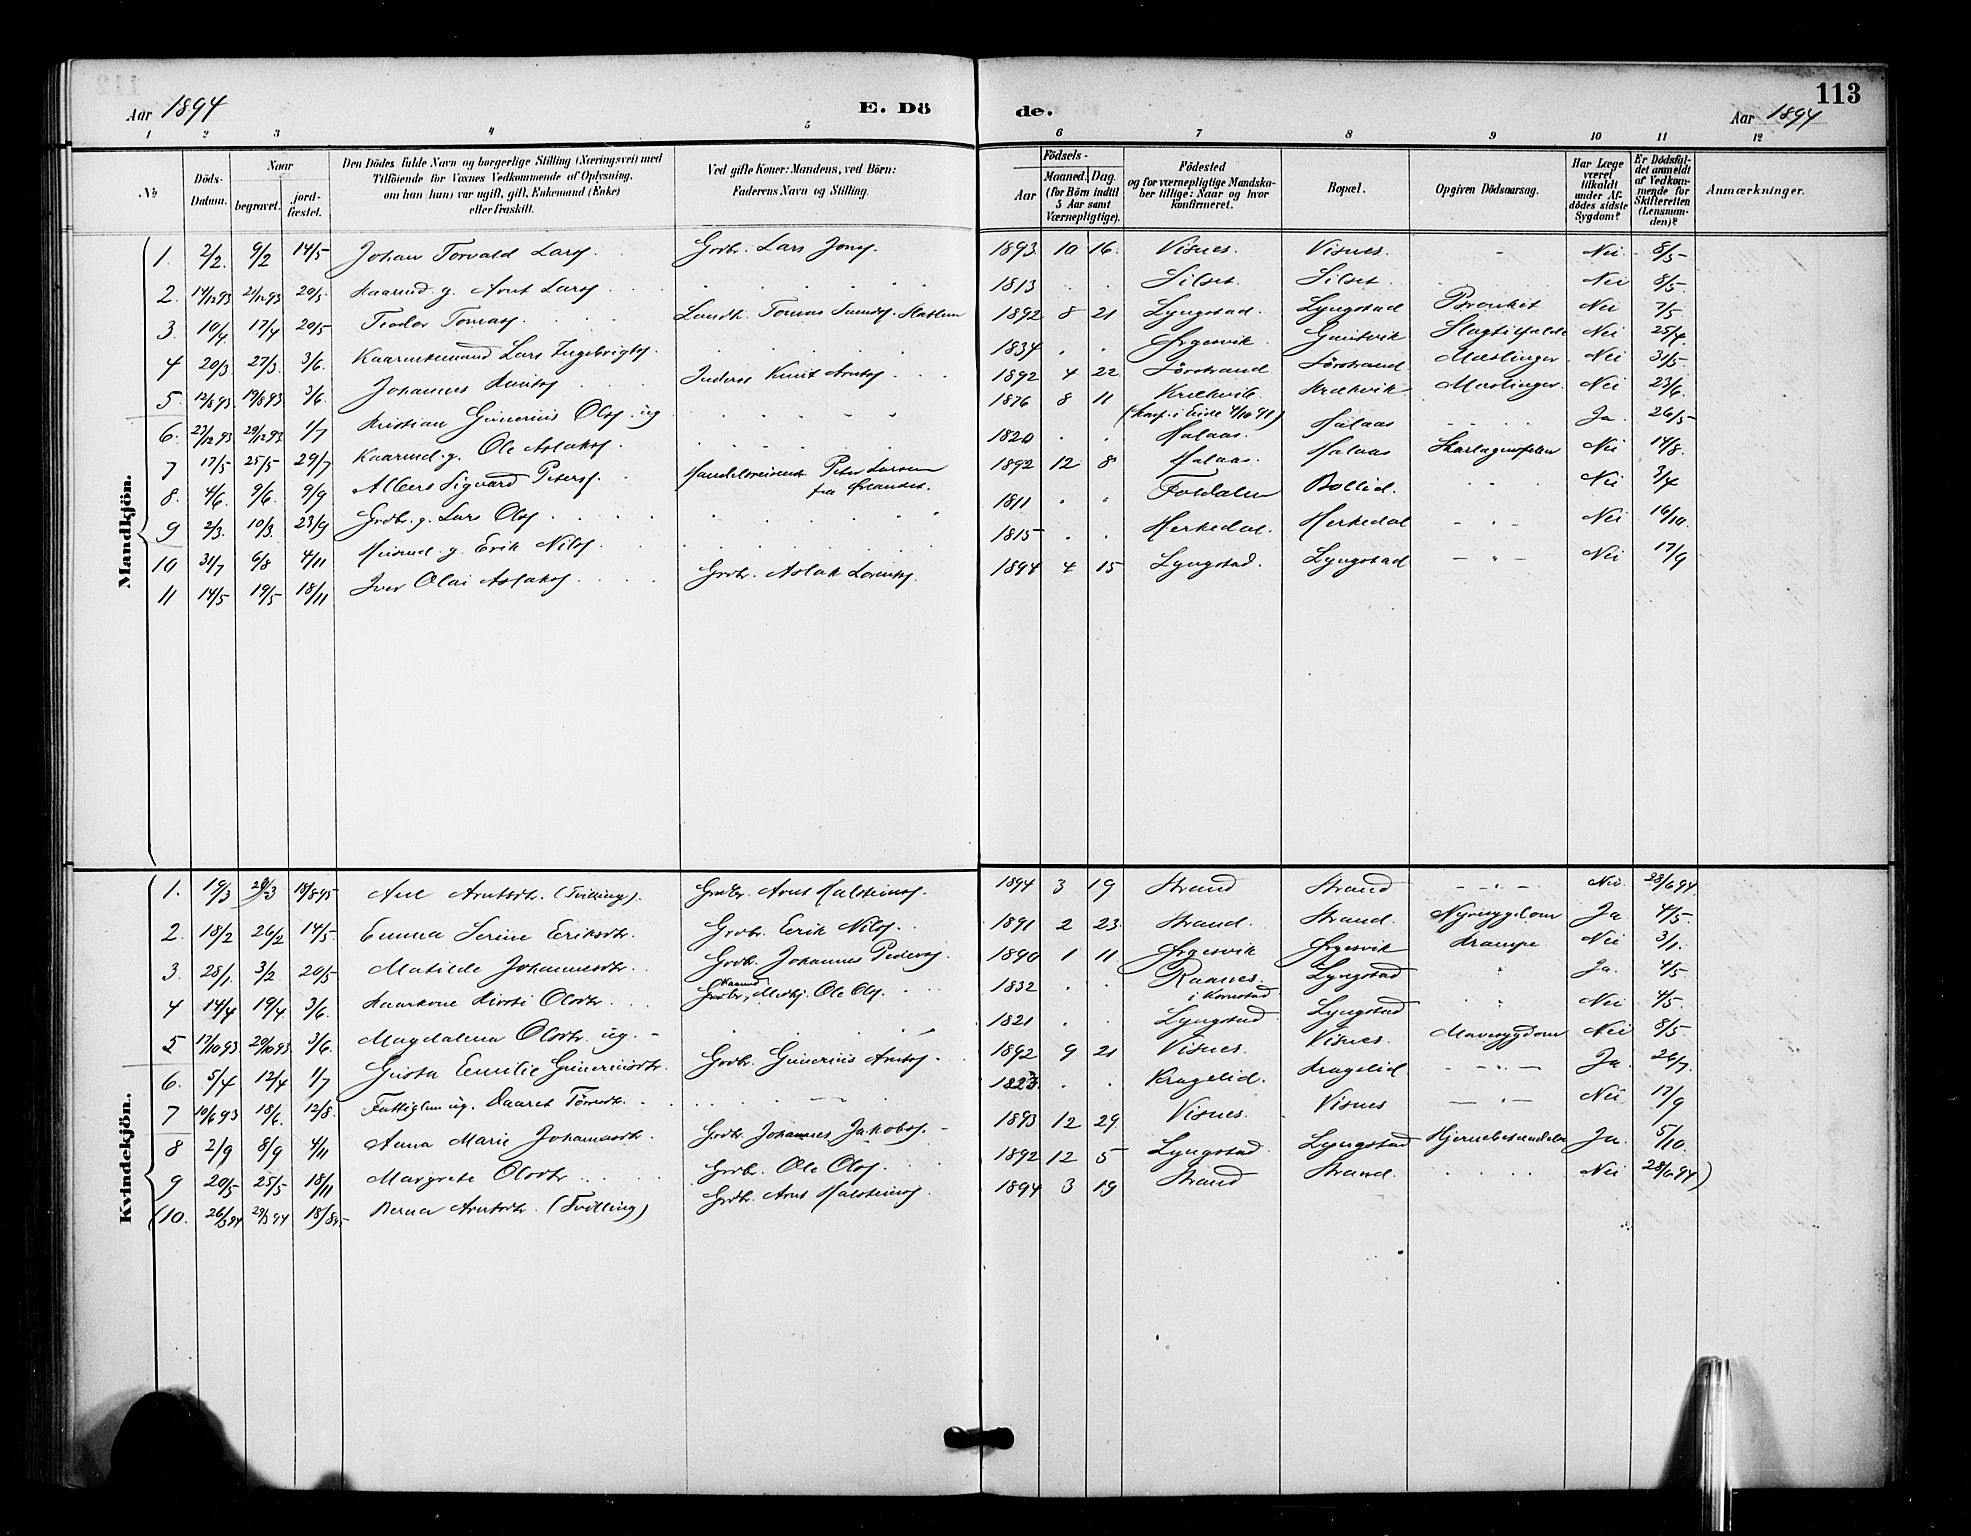 113
Aar 1894 E. Dö de. Aar 1894
1 2 3 4 5 6 7 8 9 10 11 12
№ Döds-Datum. Naar begravet. jord-fæstet. Den Dödes fulde Navn og borgerlige Stilling (Næringsvei) med Tilföiende for Voxnes Vedkommende af Oplysning, om han (hun) var ugift, gift, Enkemand (Enke) eller fraskilt. Ved gifte Koner: Mandens, ved Börn: Faderens Navn og Stilling. Aar Födsels- Maaned. Dag. (for Börn indtil 5 Aar samt Værnepligtige). Födested og for værnepligtige Mandska-ber tillige: Naar og hvor konfirmeret. Bopæl. Opgiven Dödsaarsag. Har Læge været tilkaldt under Af-dödes sidste Sygdom? Er Dödsfal-det anmeldt af Vedkom-mende for Skifteretten (Lensman-den)? Anmærkninger.
Mandkjön.
1. 2/2. 9/2 14/5 Johan Torvald Larss. Grdbr. Lars Jonss. 1893 10 16. Visnes. Visnes. - Nei. 8/5
2. 14/12 93 21/12 93 20/5 Kaarmd. g. Arnt Larss. 1813 . . Silset. Silset. Nei 8/5.
3. 10/4. 17/4 20/5 Teodor Tomass. Landh. Tomas 1892 8 21 Lyngstad. Lyngstad Bronkit Nei 7/5
4 20/3 27/3. 3/6. Lars Ingebrigts. 1834 . . Ørgesvik Slagtilfælde Nei 25/4
5. 12/8 93. 19/8 93 3/6. Johannes Knuts. Inderst Knut Arnts. 1892 4 22 Mæslinger Nei 31/5
6. 23/12 93 29/12 93 1/7 Kristian Gunerius Ols. ug 1876 8 11 Krækvik Krækvik Mæslinger. Nei 23/6
(konf. i Eide 4/10 91)
7 17/5 25/5 29/7 Kaarmd. g. Ole Aslaks. 1820 . . Halaas. Halaas Ja. 26/5
8. 4/6. 9/6. 9/9 Albert Sigvard Peters. Peter Larsen 1892 12 8 Halaas. Halaas Skarlagensfeber Nei 14/8.
9 2/3. 10/3. 23/9 Grdbr. g. Lars Ols. 1811 . . Bollid. Nei 3/4
10 31/7 6/8 4/11 Husmd. g. Erik Nils. 1815 . . Herkedal. Herkedal Nei 16/10.
11 14/5 19/5 18/11 Iver Olai Aslaks. Grdbr. Aslak Lorents. 1894 4 15 Lyngstad. Lyngstad Nei 17/9
Kvindekjön.
1. 19/3 29/3 18/8 95 Arntsdtr. (Tvilling). Grdbr. Arnt Halsteins. 1894 3 19 Strand Strand Nei. 28/6 94.
2. 18/2 26/2 14/5 Emma Serine Eriksdtr. Grdbr. Erik Nils. 1891 2 23 Strand. Strand. Nyresygdom Ja. 4/5
3. 28/1 3/2 20/5 Matilde Johannesdtr. Grdb. Johannes Peders. 1890 1 11 Ørgesvik Ørgesvik Krampe Nei 3/1.
4 14/4 19/4. 3/6. Kaarkone Kirsti Olsdtr. Kaarmd Ole Ols. 1832 . . Raanes i Kornstad Lyngstad Ja. 4/5
5 17/10 93 20/10 93. 3/6. Magdalena Olsdtr. ug. 1821 . . Lyngstad Lyngstad Nei 4/5
6. 5/4 12/4 1/7 Gusta Emilie Guneriusdtr. Grdbr. Gunerius Arnts. 1892 9 21 Visnes. Visnes. Mavesygdom Nei 8/5
7 10/6 93 18/6. 12/8. Fattiglem ug. Maaret 1823. . . Kragelid. Kragelid Ja. 26/7
8 2/9 8/9 4/11 Anna Marie Johannesdtr. Grdbr. Johannes Jakobs. 1893 12 29. Visnes. Visnes Nei 17/9
9 20/5 25/5 18/11 Margrete Olsdtr. Grdb. Ole Ols. 1892 12 5 Lyngstad Lyngstad Hjernebetændelse Ja. 5/10.
(10. 26/3 94 29/3 94 18/8 95 Berna Arntsdtr. (Tvilling) Grdbr. Arnt Halsteins. 1894 3 19 Strand Strand. Nei 28/6 94)